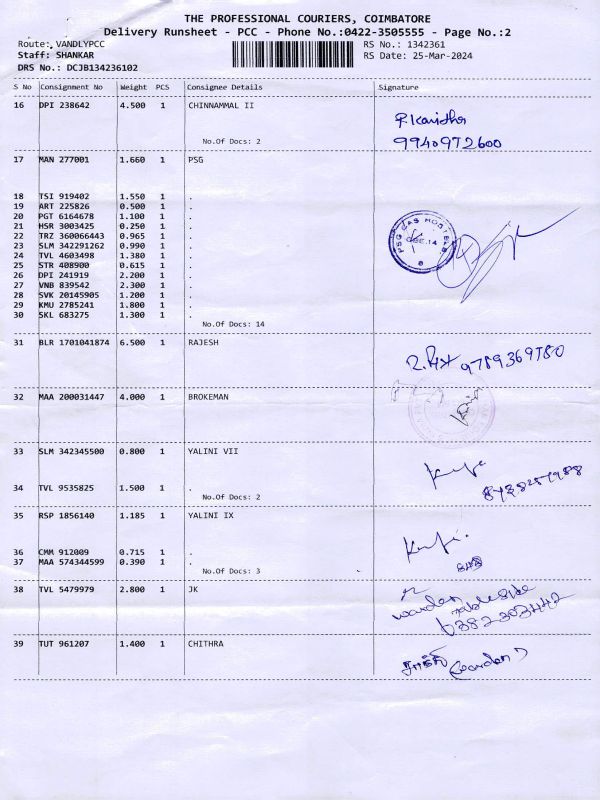 THE PROFESSIONAL COURIERS, COIMBATORE
Delivery Runsheet - PCC - Phone No.:0422-3505555 - Page No.:2
Route: VANDLYPCC RS No.: 1342361
Staff: SHANKAR RS Date: 25-Mar-2024
DRS No.: DCJB134236102
S No Consignment No Weight PCS Consignee Details Signature
16 DPI 238642 4.500 1 CHINNAMMAL II
No.Of Docs: 2
9940972600
17 MAN 277001 1.660 1 PSG
18 TSI 919402 1.550 1 .
19 ART 225826 0.500 1 .
20 PGT 6164678 1.100 1 .
21 HSR 3003425 0.250 1 .
22 TRZ 360066443 0.965 1 .
23 SLM 342291262 0.990 1 .
24 TVL 4603498 1.380 1 .
25 STR 408900 0.615 1 .
26 DPI 241919 2.200 1 .
27 VNB 839542 2.300 1 .
28 SVK 20145905 1.200 1 .
29 KMU 2785241 1.800 1 .
30 SKL 683275 1.300 1 .
No.Of Docs: 14
PSG CAS HOSTELS
31 BLR 1701041874 6.500 1 RAJESH
9789369780
32 MAA 200031447 4.000 1 BROKEMAN
33 SLM 342345500 0.800 1 YALINI VII
34 TVL 9535825 1.500 1 .
No.Of Docs: 2
35 RSP 1856140 1.185 1 YALINI IX
36 CMM 912009 0.715 1 .
37 MAA 574344599 0.390 1 .
No.Of Docs: 3
38 TVL 5479979 2.800 1 JK
warden
6382303442
39 TUT 961207 1.400 1 CHITHRA
(warden)